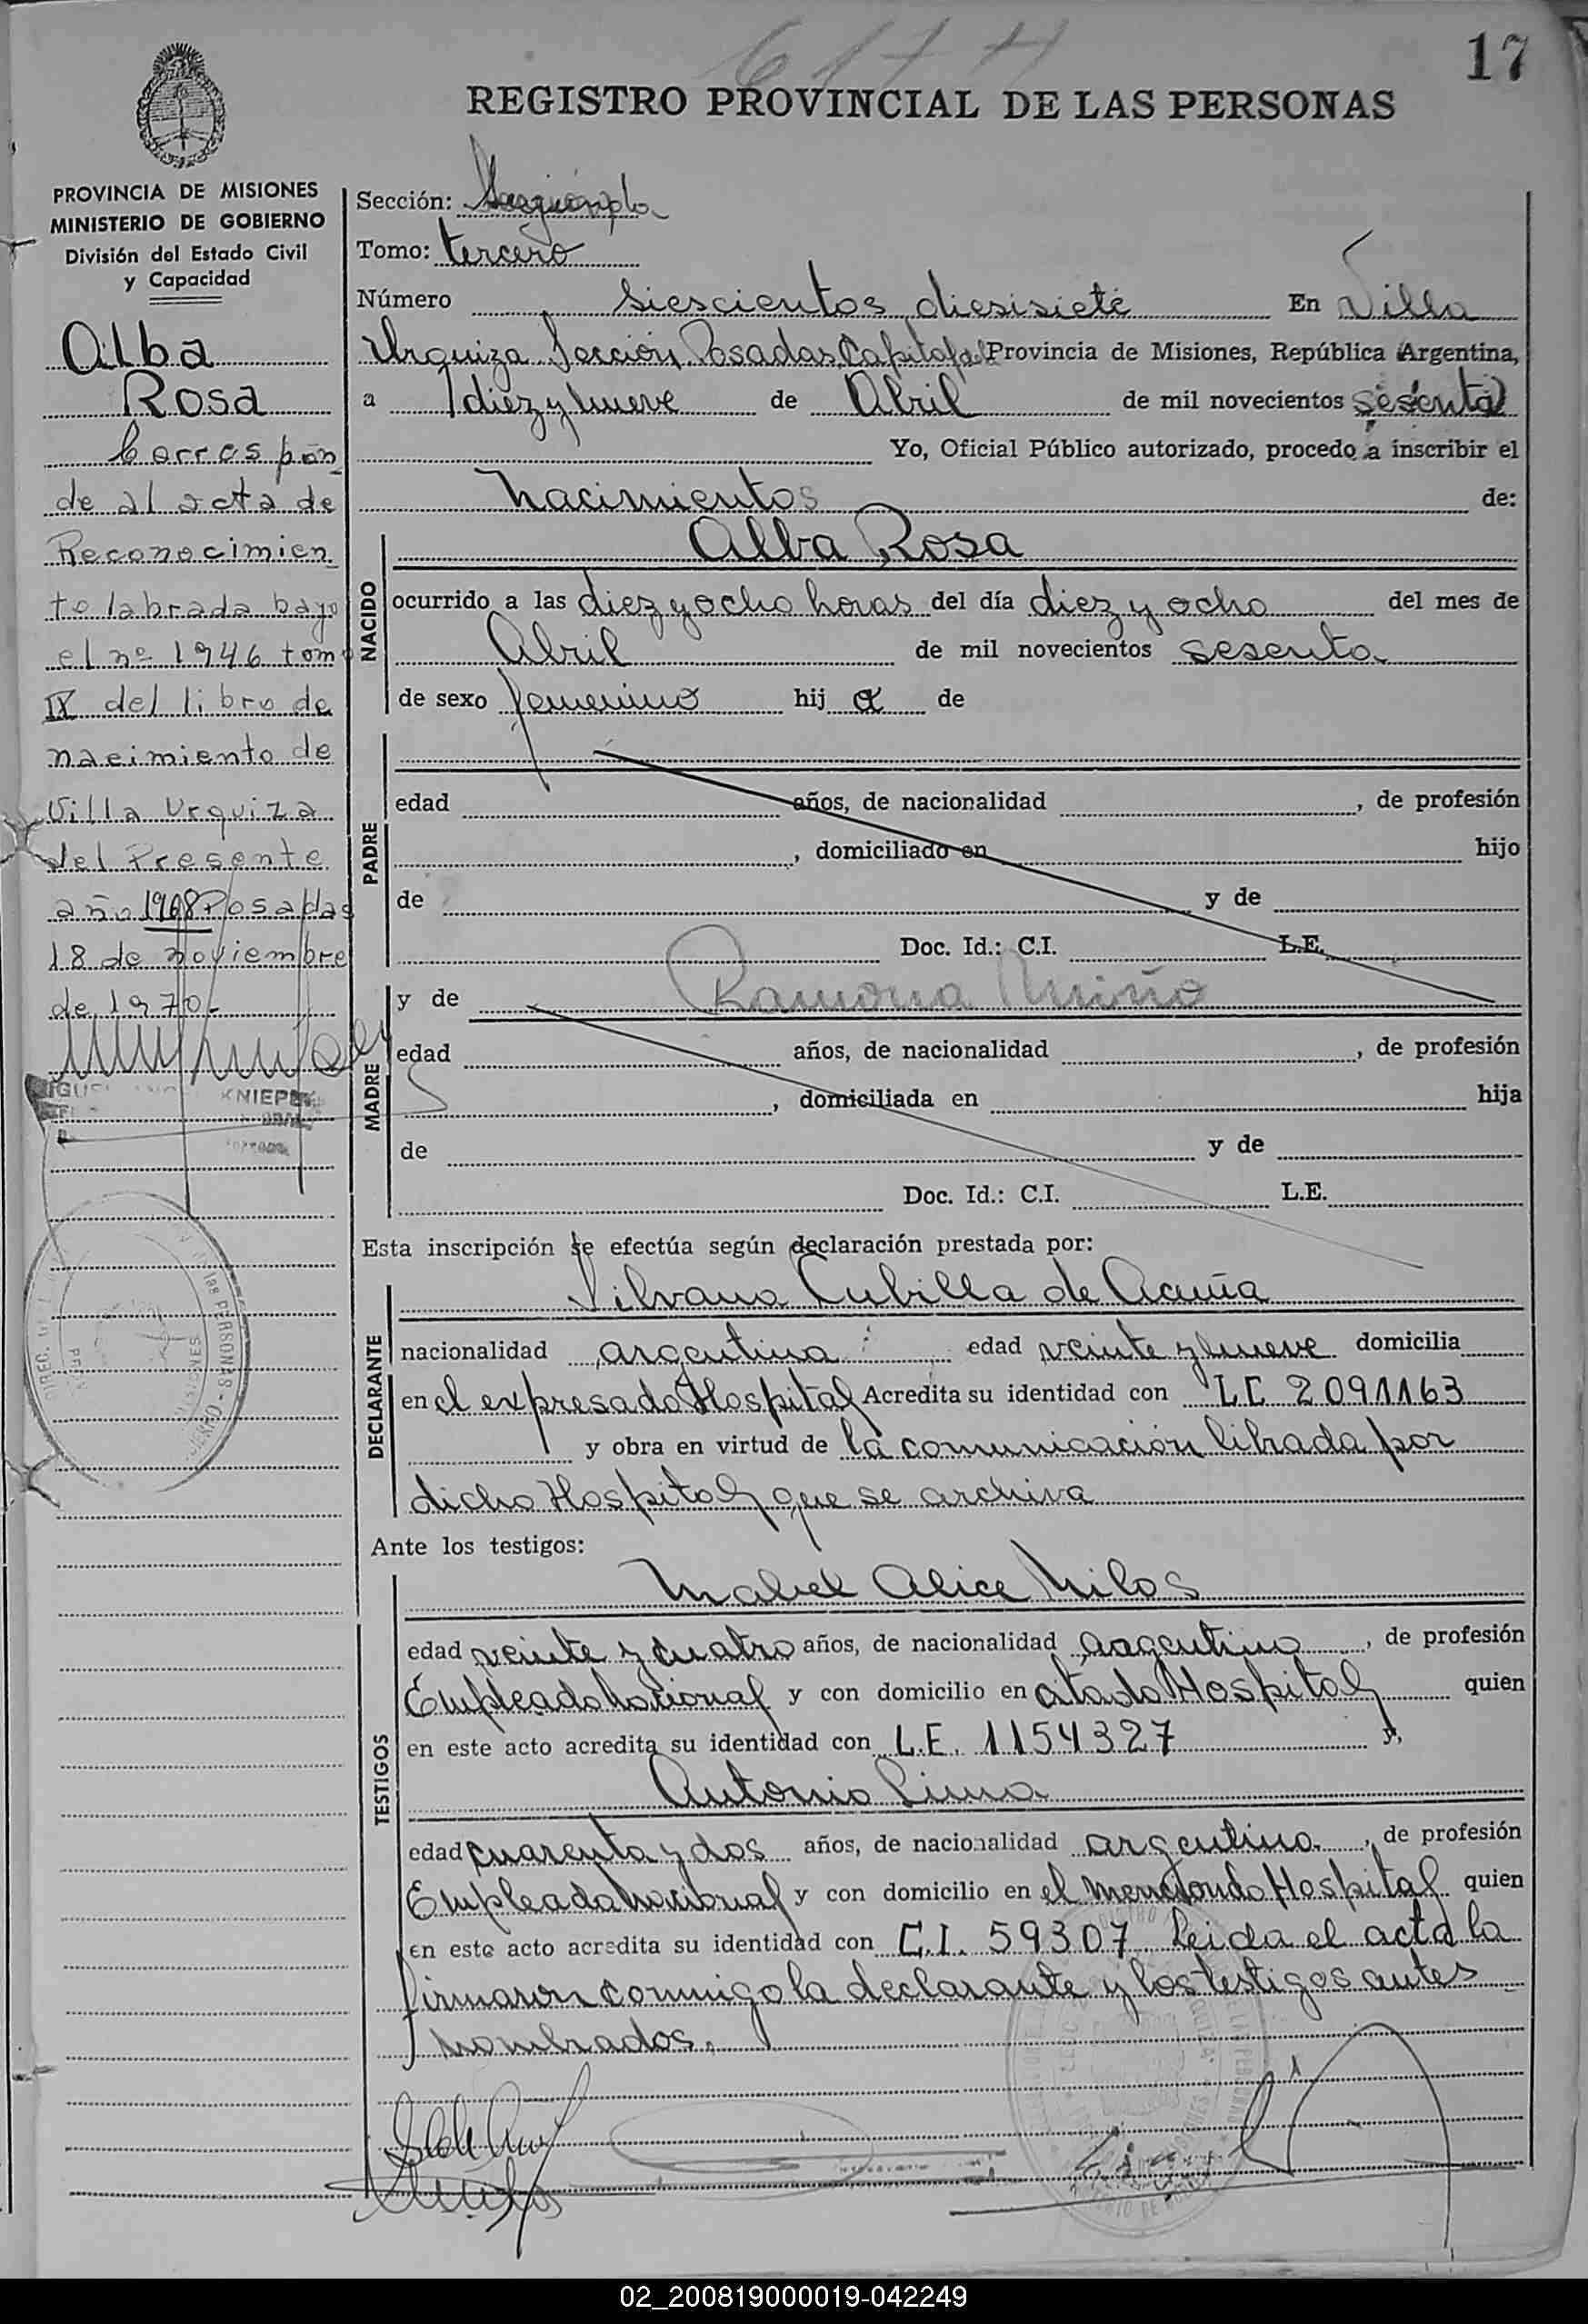 6177
17
REGISTRO PROVINCIAL DE LAS PERSONAS
PROVINCIA DE MISIONES
MINISTERIO DE GOBIERNO
División del Estado Civil
y Capacidad
Alba
Rosa
Correspon
de al acta de
Reconocimien
to labrada bajo
el nº 1946 tomo
IX del libro de
nacimiento de
Villa Urquiza
del Presente
año 1968 Posadas
18 de noviembre
de 1970-
KNIEP
Sección:
Tomo: tercero
Número siescientos diesisiete En Villa
Urquiza Sección Posadas Capital Provincia de Misiones, República Argentina,
a diez y nueve de Abril de mil novecientos sesenta
Yo, Oficial Público autorizado, procedo a inscribir el
Nacimientos de:
NACIDO
Alba Rosa
ocurrido a las diez y ocho horas del día diez y ocho del mes de
Abril de mil novecientos sesenta
de sexo femenino hij a de
PADRE
edad años, de nacionalidad , de profesión
, domiciliado en hijo
de y de
Doc. Id.: C.I. L.E.
MADRE
y de Ramona Miño
edad años, de nacionalidad , de profesión
, domiciliada en hija
de y de
Doc. Id.: C.I. L.E.
Esta inscripción se efectúa según declaración prestada por:
DECLARANTE
Silvana Cubilla de Acuña
nacionalidad argentina edad veinte y nueve domicilia
en el expresado Hospital Acredita su identidad con LC 2091163
y obra en virtud de la comunicación librada por
dicho Hospital que se archiva
Ante los testigos:
TESTIGOS
Mabel Alice Milos
edad veinte y cuatro años, de nacionalidad argentina , de profesión
Empleada Nacional y con domicilio en atado Hospital quien
en este acto acredita su identidad con L.E. 1154327 y,
Antonio Lima
edad cuarenta y dos años, de nacionalidad argentino , de profesión
Empleado Nacional y con domicilio en el mencionado Hospital quien
en este acto acredita su identidad con C.I. 59307 Leida el acta la
firmaron conmigo la declarante y los testigos antes
nombrados.
02_200819000019-042249